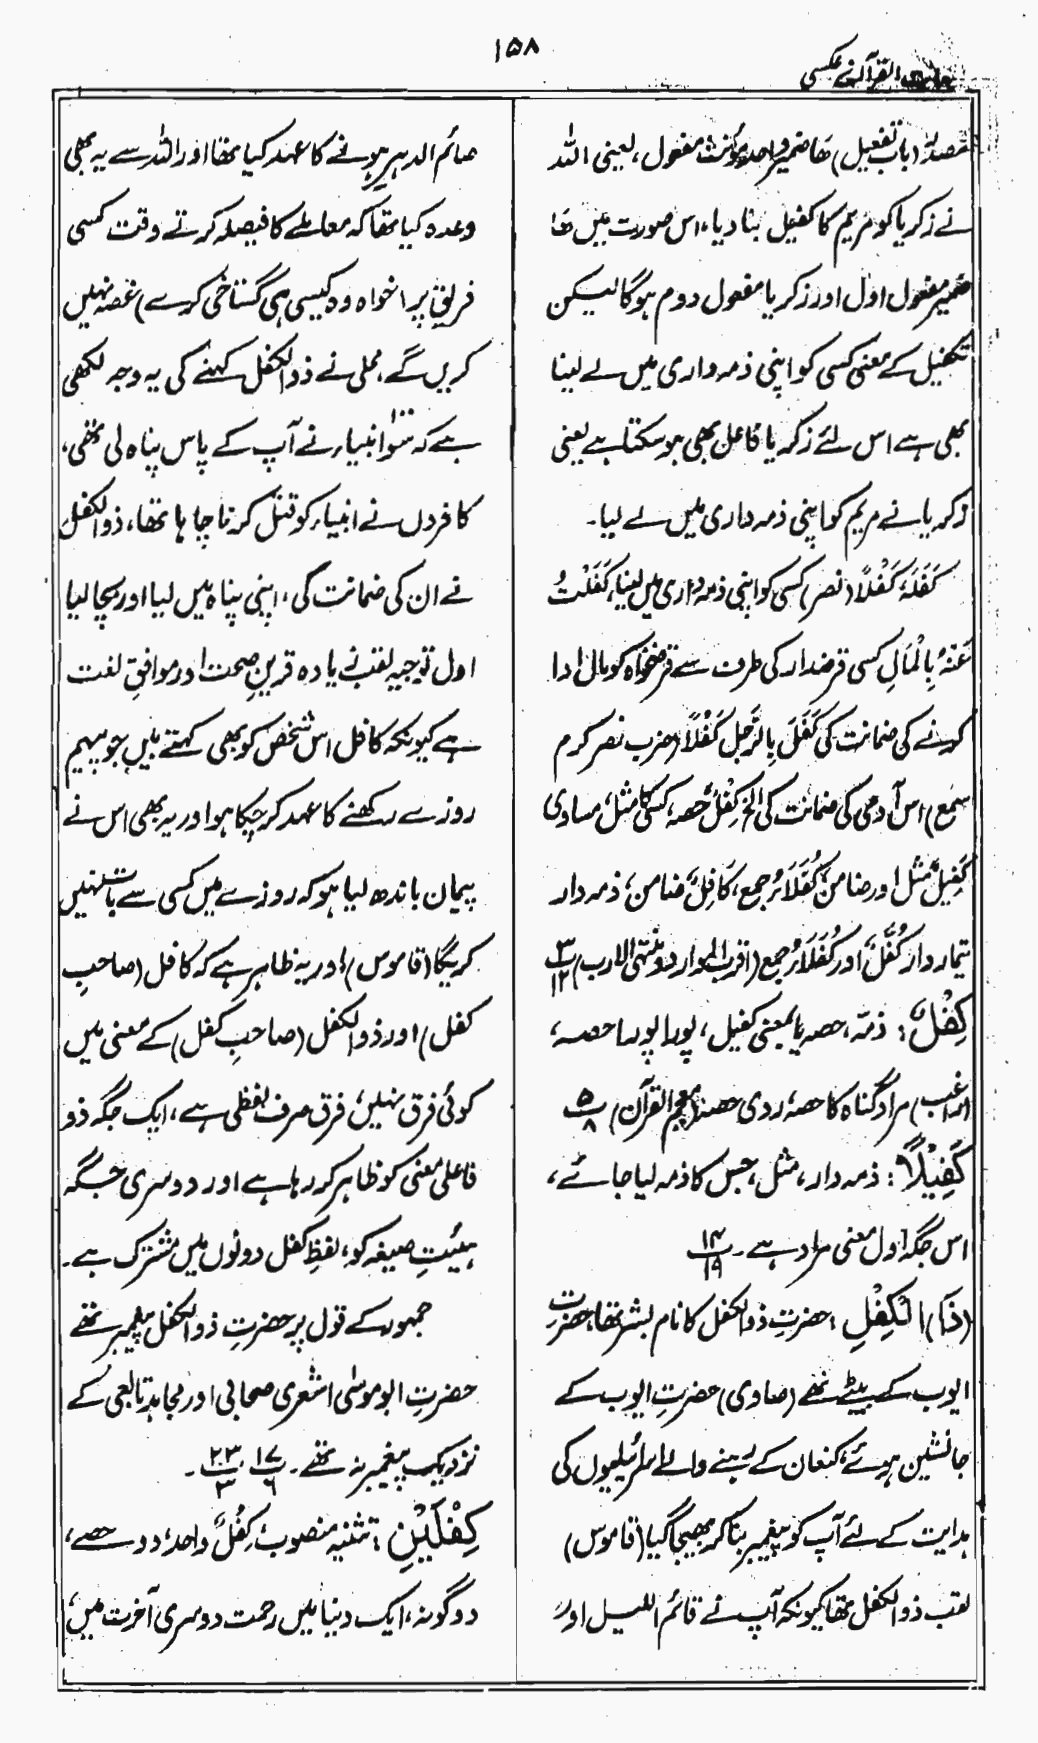 ۱۵۸
القرآن عکسی
(باب تفعیل) ھَا ضمیر واحد مؤنث مفعول، یعنی اللہ
نے زکریا کو مریم کا کفیل بنا دیا، اس صورت میں ھَا
ضمیر مفعول اول اور زکریا مفعول دوم ہوگا لیکن
تکفیل کے معنی کسی کو اپنی ذمہ داری میں لے لینا
بھی ہے اس لئے زکریا فاعل بھی ہو سکتا ہے یعنی
زکریا نے مریم کو اپنی ذمہ داری میں لے لیا۔
کَفَلَہٗ کَفْلًا (نصر) کسی کو اپنی ذمہ داری میں لینا، کَفَلْتُ
عَنْہُ بِالْمَالِ کسی قرضدار کی طرف سے قرضخواہ کو مال ادا
کرنے کی ضمانت کی کَفَلَ بِالرَّجُلِ کَفْلًا (ضرب نصر کرم
سمع) اس آدمی کی ضمانت کی الخ کِفْلٌ حصہ، کسی کا مثل، مساوی
کَفِیْلٌ مثل اور ضامن کُفَلَاءُ جمع، کَافِلٌ ضامن، ذمہ دار
تیماردار کُفَّلٌ اور کُفَلَاءُ جمع (اقرب الموارد و منتہی الارب) ۳ / ۱۲
کِفْلٌ: ذمہ، حصہ یا بمعنی کفیل، پورا پورا حصہ،
(راغب) مراد گناہ کا حصہ، ردی حصہ (معجم القرآن) ۵ / ۸
کَفِیْلًا: ذمہ دار، مثل، جس کا ذمہ لیا جائے،
اس جگہ اول معنی مراد ہے۔ ۱۴ / ۱۹
(ذَا) الْکِفْلِ: حضرتِ ذو الکفل کا نام بشر تھا، حضرتِ
ایوب کے بیٹے تھے (صاوی) حضرتِ ایوب کے
جانشین ہوئے، کنعان کے رہنے والے اسرائیلیوں کی
ہدایت کے لئے آپ کو پیغمبر بنا کر بھیجا گیا (قاموس)
لقب ذو الکفل تھا کیونکہ آپ نے قائم اللیل اور
صائم الدہر ہونے کا عہد کیا تھا اور اللہ سے یہ بھی
وعدہ کیا تھا کہ معاملے کا فیصلہ کرتے وقت کسی
فریق پر (خواہ وہ کیسی ہی گستاخی کرے) غصہ نہیں
کریں گے، محلی نے ذو الکفل کہنے کی یہ وجہ لکھی
ہے کہ سو۱۰۰ انبیاء نے آپ کے پاس پناہ لی تھی،
کافروں نے انبیاء کو قتل کرنا چاہا تھا، ذو الکفل
نے ان کی ضمانت کی، اپنی پناہ میں لیا اور بچا لیا
اول توجیہِ لقب زیادہ قرینِ صحت اور موافقِ لغت
ہے کیونکہ کافل اس شخص کو بھی کہتے ہیں جو پیہم
روزے رکھنے کا عہد کر چکا ہو اور یہ بھی اس نے
پیمان باندھ لیا ہو کہ روزے میں کسی سے بات نہیں
کریگا (قاموس) اور یہ ظاہر ہے کہ کافل (صاحبِ
کفل) اور ذو الکفل (صاحبِ کفل) کے معنی میں
کوئی فرق نہیں، فرق صرف لفظی ہے، ایک جگہ ذو
فاعلی معنی کو ظاہر کر رہا ہے اور دوسری جگہ
ہیئتِ صیغہ کو، لفظِ کفل دونوں میں مشترک ہے۔
جمہور کے قول پر حضرتِ ذو الکفل پیغمبر تھے
حضرتِ ابو موسیٰ اشعری صحابی اور مجاہد تابعی کے
نزدیک پیغمبر نہ تھے۔ ۱۷ / ۶ ۲۳ / ۳۔
کِفْلَیْنِ: تثنیہ منصوب، کِفْلٌ واحد، دو حصے،
دوگونہ، ایک دنیا میں رحمت دوسری آخرت میں،